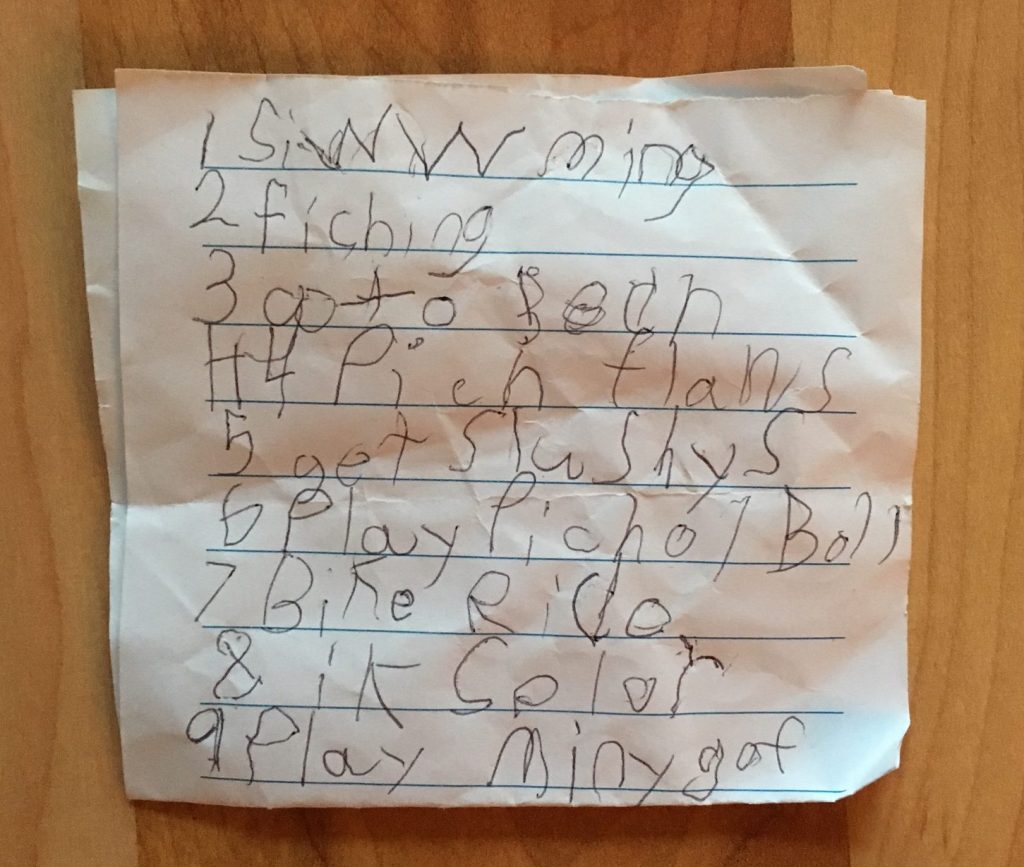 1 SiWWming
2 fiching
3 go to Bedn
4 Pich flans
5 get Slushys
6 Play Pichol Boll
7 Bike Ride
8 ik Color
9 Play Minygof